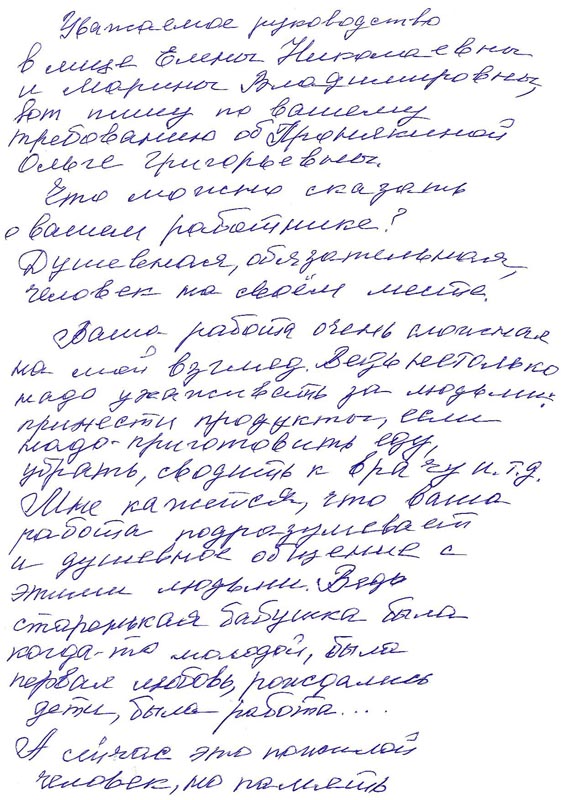 Уважаемое руководство
в лице Елены Николаевны
и Марины Владимировны,
вот пишу по вашему
требованию об Пронякиной
Ольге Григорьевны.
Что можно сказать
о вашем работнике?
Душевная, обязательная,
человек на своём месте.
Ваша работа очень сложная
на мой взгляд. Ведь нетолько
надо ухаживать за людьми:
принести продукты, если
надо-приготовить еду,
убрать, сводить к врачу и.т.д.
Мне кажется, что ваша
работа подразумевает
и душевное общение с
этими людьми. Ведь
старенькая бабушка была
когда-то молодой, была
первая любовь, рождались
дети, была работа....
А сейчас это пожилой
человек, но память